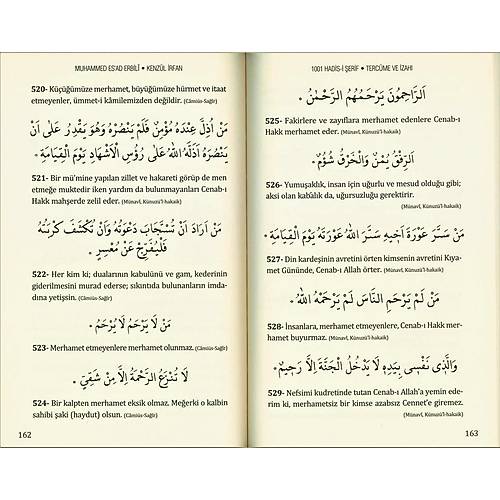 MUHAMMED ES'AD ERBİLÎ • KENZÜL İRFAN
520- Küçüğümüze merhamet, büyüğümüze hürmet ve itaat
etmeyenler, ümmet-i kâmilemizden değildir. (Câmiüs-Sağîr)
مَنْ اُذِلَّ عِنْدَهُ مُؤْمِنٌ فَلَمْ يَنْصُرْهُ وَهُوَ يَقْدِرُ عَلٰى اَنْ
يَنْصُرَهُ اَذَلَّهُ اللهُ عَلٰى رُؤُسِ الْاَشْهَادِ يَوْمَ الْقِيَامَةِ
521- Bir mü'mine yapılan zillet ve hakareti görüp de men
etmeğe muktedir iken yardım da bulunmayanları Cenab-ı
Hakk mahşerde zelil eder. (Münavî, Künuzü'l-hakaik)
مَنْ اَرَادَ اَنْ تُسْتَجَابَ دَعْوَتُهُ وَاَنْ تُكْشَفَ كُرْبَتُهُ
فَلْيُفَرِّجْ عَنْ مُعْسِرٍ
522- Her kim ki; dualarının kabulünü ve gam, kederinin
giderilmesini murad ederse; sıkıntıda bulunanların imda-
dına yetişsin. (Câmiüs-Sağîr)
مَنْ لَا يَرْحَمُ لَا يُرْحَمُ
523- Merhamet etmeyenlere merhamet olunmaz. (Câmiüs-Sağîr)
لَا تُنْزَعُ الرَّحْمَةُ اِلَّا مِنْ شَقِيٍّ
524- Bir kalpten merhamet eksik olmaz. Meğerki o kalbin
sahibi şaki (haydut) olsun. (Câmiüs-Sağîr)
162
1001 HADİS-İ ŞERİF • TERCÜME VE İZAHI
اَلرَّاحِمُونَ يَرْحَمُهُمُ الرَّحْمٰنُ
525- Fakirlere ve zayıflara merhamet edenlere Cenab-ı
Hakk merhamet eder. (Münavî, Künuzü'l-hakaik)
اَلرِّفْقُ يُمْنٌ وَالْخَرْقُ شُؤْمٌ
526- Yumuşaklık, insan için uğurlu ve mesud olduğu gibi;
aksi olan kabâlık da, uğursuzluğu gerektirir.
(Münavî, Künuzü'l-hakaik)
مَنْ سَتَرَ عَوْرَةَ اَخِيهِ سَتَرَ اللهُ عَوْرَتَهُ يَوْمَ الْقِيَامَةِ
527- Din kardeşinin avretini örten kimsenin avretini Kıya-
met Gününde, Cenab-ı Allah örter. (Münavî, Künuzü'l-hakaik)
مَنْ لَمْ يَرْحَمِ النَّاسَ لَمْ يَرْحَمْهُ اللهُ
528- İnsanlara, merhamet etmeyenlere, Cenab-ı Hakk mer-
hamet buyurmaz. (Münavî, Künuzü'l-hakaik)
وَالَّذِي نَفْسِي بِيَدِهِ لَا يَدْخُلُ الْجَنَّةَ اِلَّا رَحِيمٌ
529- Nefsimi kudretinde tutan Cenab-ı Allah'a yemin ede-
rim ki, merhametsiz bir kimse azabsız Cennet'e giremez.
(Münavî, Künuzü'l-hakaik)
163